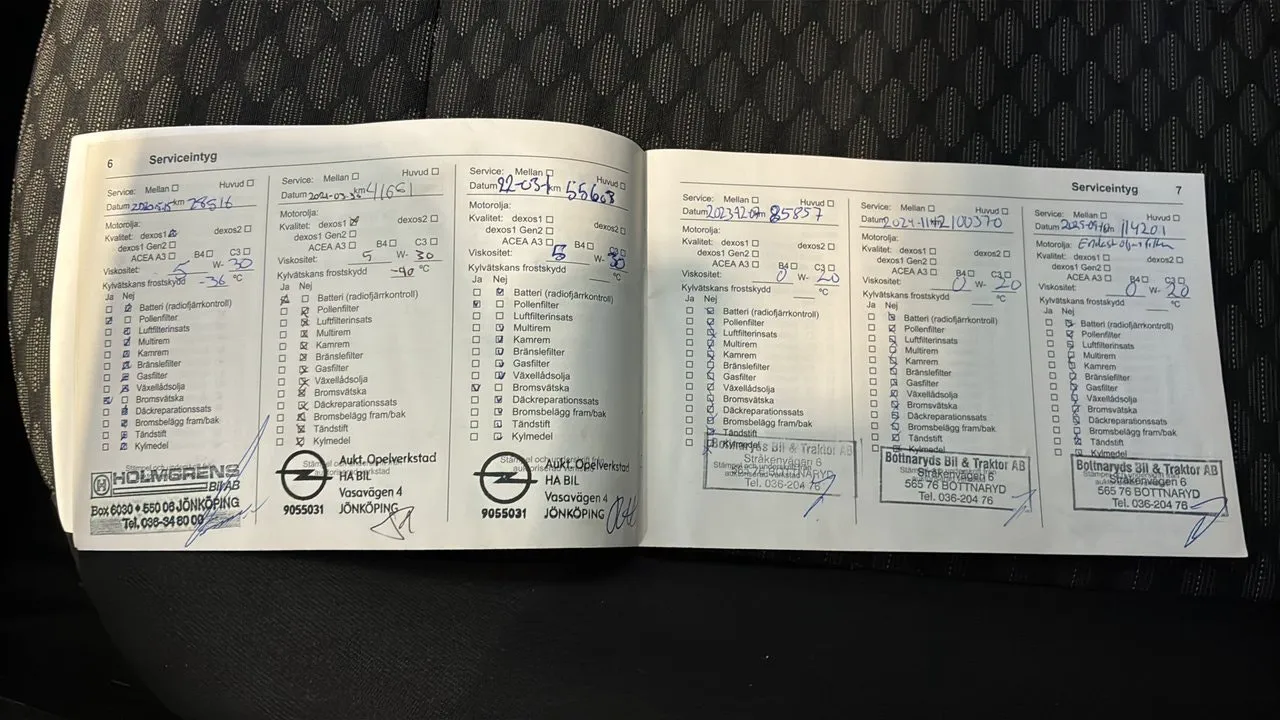 6 Serviceintyg
Service: Mellan Huvud
Datum km 28516
Motorolja:
Kvalitet: dexos1 dexos2
dexos1 Gen2
ACEA A3 B4 C3
Viskositet: 5 W- 30
Kylvätskans frostskydd -36 °C
Ja Nej
Batteri (radiofjärrkontroll)
Pollenfilter
Luftfilterinsats
Multirem
Kamrem
Bränslefilter
Gasfilter
Växellådsolja
Bromsvätska
Däckreparationssats
Bromsbelägg fram/bak
Tändstift
Kylmedel
HOLMGRENS
BIL AB
Box 6030 • 550 06 JÖNKÖPING
Tel. 036-34 80 00
Service: Mellan Huvud
Datum km 41661
Motorolja:
Kvalitet: dexos1 dexos2
dexos1 Gen2
ACEA A3 B4 C3
Viskositet: 5 W- 30
Kylvätskans frostskydd -40 °C
Ja Nej
Batteri (radiofjärrkontroll)
Pollenfilter
Luftfilterinsats
Multirem
Kamrem
Bränslefilter
Gasfilter
Växellådsolja
Bromsvätska
Däckreparationssats
Bromsbelägg fram/bak
Tändstift
Kylmedel
Aukt. Opelverkstad
HA BIL
Vasavägen 4
9055031 JÖNKÖPING
Service: Mellan Huvud
Datum km 55608
Motorolja:
Kvalitet: dexos1 dexos2
dexos1 Gen2
ACEA A3 B4 C3
Viskositet: 5 W- 30
Kylvätskans frostskydd °C
Ja Nej
Batteri (radiofjärrkontroll)
Pollenfilter
Luftfilterinsats
Multirem
Kamrem
Bränslefilter
Gasfilter
Växellådsolja
Bromsvätska
Däckreparationssats
Bromsbelägg fram/bak
Tändstift
Kylmedel
Aukt. Opelverkstad
HA BIL
Vasavägen 4
9055031 JÖNKÖPING
Serviceintyg 7
Service: Mellan Huvud
Datum 2023-12-07 km 85857
Motorolja:
Kvalitet: dexos1 dexos2
dexos1 Gen2
ACEA A3 B4 C3
Viskositet: 0 W- 20
Kylvätskans frostskydd °C
Ja Nej
Batteri (radiofjärrkontroll)
Pollenfilter
Luftfilterinsats
Multirem
Kamrem
Bränslefilter
Gasfilter
Växellådsolja
Bromsvätska
Däckreparationssats
Bromsbelägg fram/bak
Tändstift
Kylmedel
Bottnaryds Bil & Traktor AB
Stråkenvägen 6
565 76 BOTTNARYD
Tel. 036-204 76
Service: Mellan Huvud
Datum 100370
Motorolja:
Kvalitet: dexos1 dexos2
dexos1 Gen2
ACEA A3 B4 C3
Viskositet: 0 W- 20
Kylvätskans frostskydd °C
Ja Nej
Batteri (radiofjärrkontroll)
Pollenfilter
Luftfilterinsats
Multirem
Kamrem
Bränslefilter
Gasfilter
Växellådsolja
Bromsvätska
Däckreparationssats
Bromsbelägg fram/bak
Tändstift
Kylmedel
Bottnaryds Bil & Traktor AB
Stråkenvägen 6
565 76 BOTTNARYD
Tel. 036-204 76
Service: Mellan Huvud
Datum km 114201
Motorolja: Endast olja+filter
Kvalitet: dexos1 dexos2
dexos1 Gen2
ACEA A3 B4 C3
Viskositet: 0 W- 20
Kylvätskans frostskydd °C
Ja Nej
Batteri (radiofjärrkontroll)
Pollenfilter
Luftfilterinsats
Multirem
Kamrem
Bränslefilter
Gasfilter
Växellådsolja
Bromsvätska
Däckreparationssats
Bromsbelägg fram/bak
Tändstift
Kylmedel
Bottnaryds Bil & Traktor AB
Stråkenvägen 6
565 76 BOTTNARYD
Tel. 036-204 76